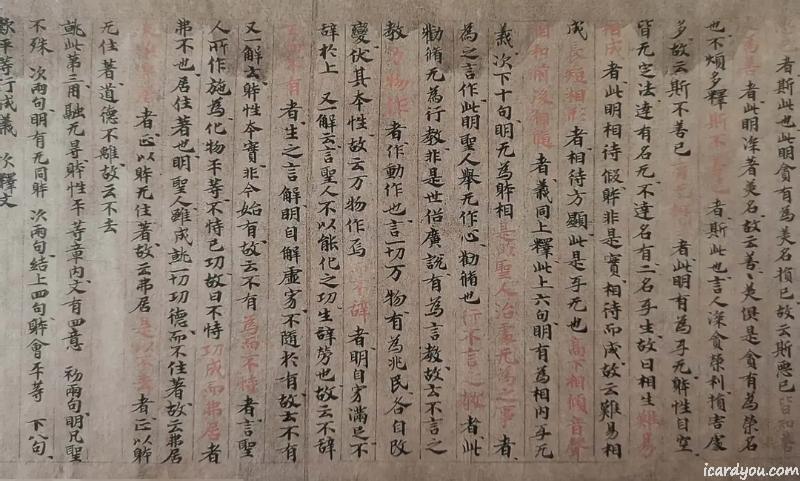 者斯此也此明貪有為美名損已故云斯惡已皆知善
為善者此明深著美名故云善美俱是貪有為榮名
也不煩多釋斯不善者斯此也言人深貪榮利損害處
多故云斯不善已者此明有為乎无躰性自空
皆无定法達有名无不達名有二名乎生故曰相生難易
相成者此明相待假躰非是實相待而成故云難易相
成長短相形者相待方顯此是乎无也高下相傾音聲
相和前後相隨者義同上釋此上六句明有為相内乎无
義次下十句明无為躰相是以聖人治處无為之事者
為之言作此明聖人舉无作心勸脩也行不言之教者此
勸脩无為行教非是世俗廣說有為言教故云不言之
教万物作者作動作也言一切万物有為兆民各自改
變伏其本性故云万物作焉而不辭者明自穷滿足不
辭於上又一解云言聖人不以能化之功生辞勞也故云不辞
生而不有者生之言解明自解虛穷不隨於有故云不有
又一解云躰性本實非今始有故云不有為而不恃者言聖
人所作施為化物平等不恃已功故曰不恃功成而弗居者
弗不也居住著也明聖人雖成就一切功德而不住著故云弗居
者正以躰无住著故云弗居是以不去者正以躰
无住著道德不離故云不去
就此第三用融无㝵躰性平等章内文有四意初兩句明凡聖
不殊次兩句明有无同躰次兩句結上四句躰會平等下八句
歎平等行成義次釋文